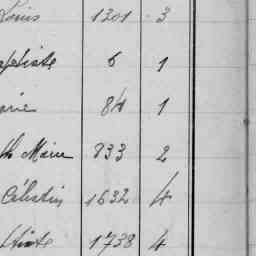 Louis 1301 3
aptiste 6 1
arie 84 1
th Marie 833 2
Célestin 1632 4
ptiste 1738 4